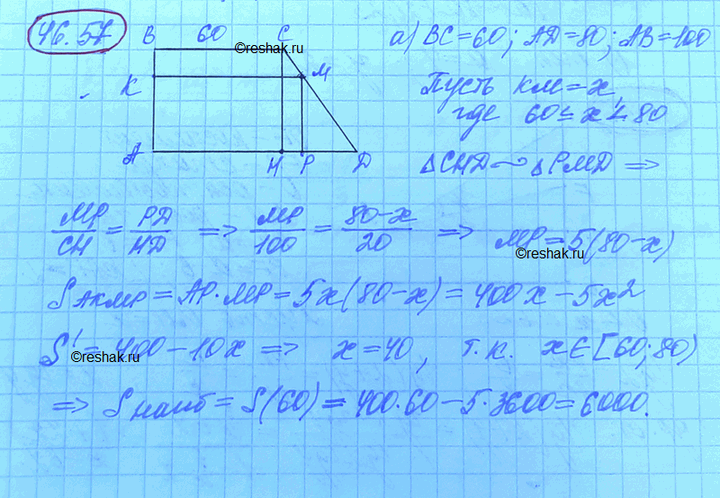 46.57 B 60 C а) BC=60; AD=80; AB=100
©reshak.ru
K M Пусть KM=x,
где 60≤x<80
A H P D ΔCHD ∼ ΔPMD ⇒
MP/CH = PD/HD ⇒ MP/100 = 80-x/20 ⇒ MP=5(80-x)
©reshak.ru
S AKMP = AP·MP = 5x(80-x) = 400x - 5x²
S' = 400 - 10x ⇒ x = 40, т.к. x∈[60;80)
©reshak.ru
⇒ S наиб = S(60) = 400·60 - 5·3600 = 6000.